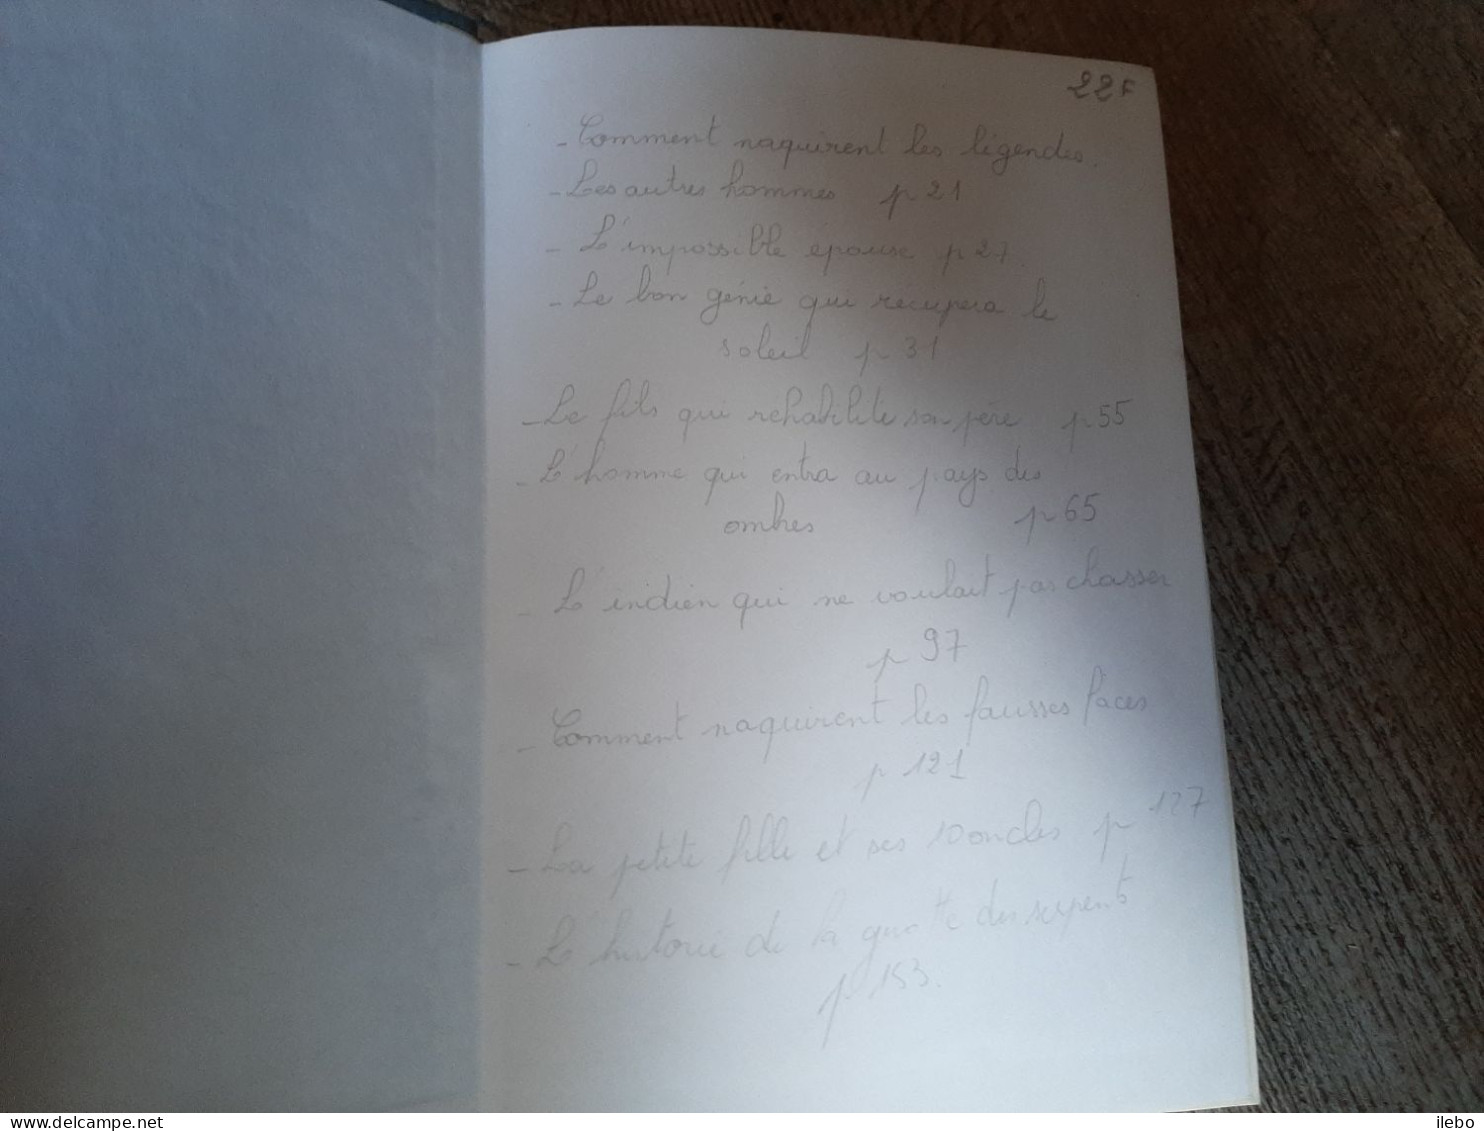 22F
- Comment naquirent les légendes.
- Les autres hommes p 21
- L'impossible épouse p 27.
- Le bon génie qui récupera le
soleil p 31
- Le fils qui rehabilite son père p 55
- L'homme qui entra au pays des
ombres p 65
- L'indien qui ne voulait pas chasser
p 97
- Comment naquirent les fausses faces
p 121
- La petite fille et ses 10 oncles p 127
- L'histoire de la grotte des serpents
p 153.
www.delcampe.net
ilebo